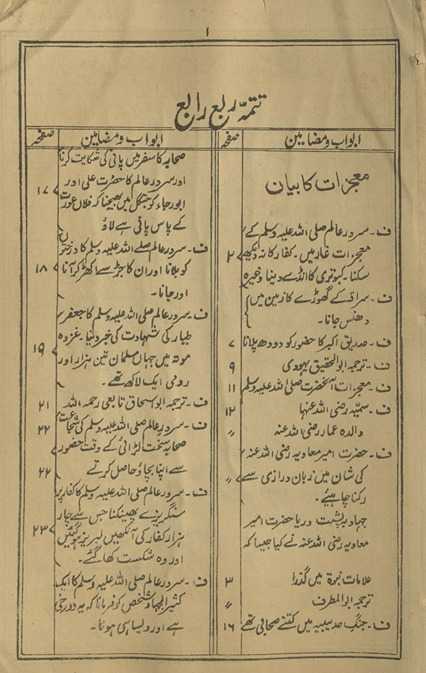 ۱
تتمہ ربع رابع
ابواب و مضامین صفحہ
معجزات کا بیان
ف۔ سرور عالم صلی اللہ علیہ وسلم کے
معجزات غار میں۔ کفار کا نہ دیکھ ۲
سکنا۔ کبوتری کا انڈے دینا وغیرہ
ف۔ سراقہ کے گھوڑے کا زمین میں
دھنس جانا۔
ف۔ صدیق اکبر کا حضور کو دودھ پلانا ۷
ف۔ ترجمہ ابو الحقیق یہودی ۹
ف۔ معجزات آنحضرت صلی اللہ علیہ وسلم ۱۱
ف۔ سمیّہ رضی اللہ عنہا ۱۲
والدہ عمار رضی اللہ عنہ 〃
ف۔ حضرت امیر معاویہ رضی اللہ عنہ
کی شان میں زبان درازی سے 〃
رکنا چاہیئے۔
جہاد بہشت دریا حضرت امیر
معاویہ رضی اللہ عنہ نے کیا جیسا کہ
علامات نبوۃ میں گذرا ۳
ترجمہ ابو المطرف 〃
ف۔ جنگ حدیبیہ میں کتنے صحابی تھے ۱۶
ابواب و مضامین صفحہ
صحابہ کا سفر میں پانی کی شکایت کرنا
اور سرور عالم کا حضرت علی اور
ابو رجاء کو جنگل میں بھیجنا کہ فلاں عورت ۱۷
کے پاس پانی ہے لاؤ
ف۔ سرور عالم صلے اللہ علیہ وسلم کا درختوں
کو بلانا اور ان کا جڑ سے اکھڑ کر آنا ۱۸
اور جانا۔
ف۔ سرور عالم صلی اللہ علیہ وسلم کا جعفر
طیار کی شہادت کی خبر دینا۔ غزوہ
موتہ میں جہاں مسلمان تین ہزار اور ۱۹
رومی ایک لاکھ تھے۔
ف۔ ترجمہ ابو اسحاق تابعی رحمہ اللہ ۲۱
ف۔ سرور عالم صلی اللہ علیہ وسلم کی شجاعت ۲۲
صحابہ سخت لڑائی کے وقت حضور
سے اپنا بچاؤ حاصل کرتے ۲۲
ف۔ سرور عالم صلی اللہ علیہ وسلم کا کفار پر
سنگریزے پھینکنا جس سے چار
ہزار کفار کی آنکھیں لبریز ہو گئیں ۲۳
اور وہ شکست کھا گئے۔
ف۔ سرور عالم صلی اللہ علیہ وسلم کا ایک
کثیر الجہاد شخص کو فرمانا کہ یہ دوزخی
ہے اور ویسا ہی ہونا۔